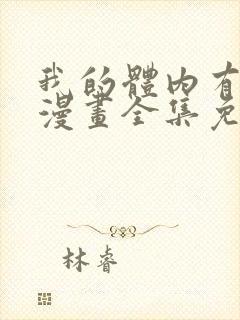 我的體內有
漫畫全集免
林睿